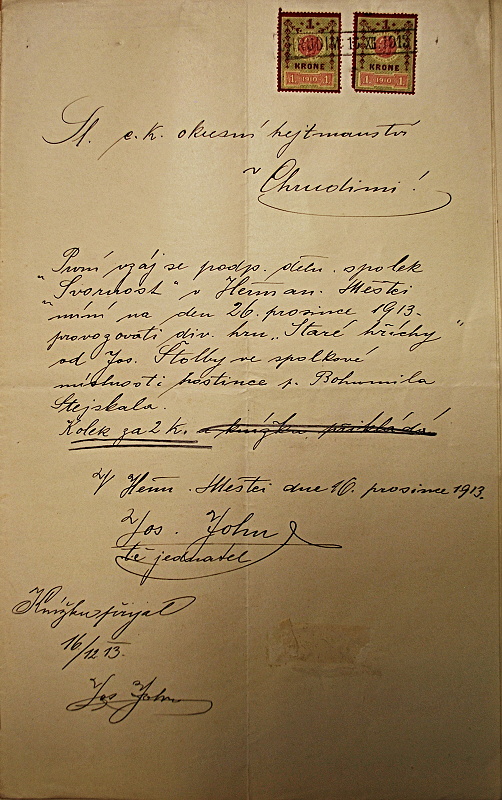 1 1
KRONE KRONE
1. 1910 1. 1. 1910 1.
Sl. c.k. okresní hejtmanství
v Chrudimi!
První vzáj se podp. děln. spolek
"Svornost" v Heřman. Městci
míní na den 26. prosince 1913.
provozovati div. hru „Staré hříchy"
od Jos. Štolby ve spolkové
místnosti hostince p. Bohumila
Stejskala.
Kolek za 2 K. knížku přikládá
V Heřm. Městci dne 16. prosince 1913.
Jos. John
jednatel
Knížku přijal
16/12 13.
Jos John